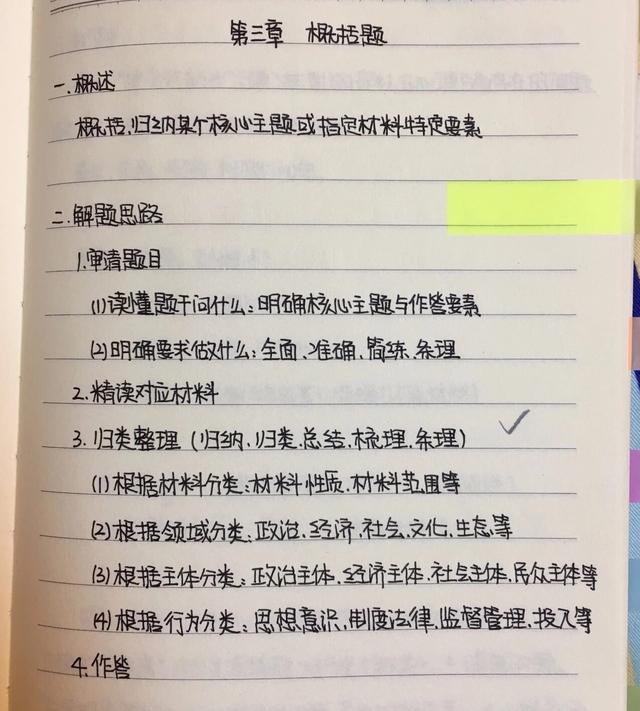 第三章 概括题
一.概述
概括,归纳某个核心主题或指定材料特定要素
二.解题思路
1.审清题目
(1)读懂题干问什么:明确核心主题与作答要素
(2)明确要求做什么:全面、准确、简练、条理
2.精读对应材料
3.归类整理(归纳、归类、总结、梳理、条理)
(1)根据材料分类:材料性质、材料范围等
(2)根据领域分类:政治、经济、社会、文化、生态等
(3)根据主体分类:政治主体、经济主体、社会主体、民众主体等
(4)根据行为分类:思想意识、制度法律、监督管理、投入等
4.作答